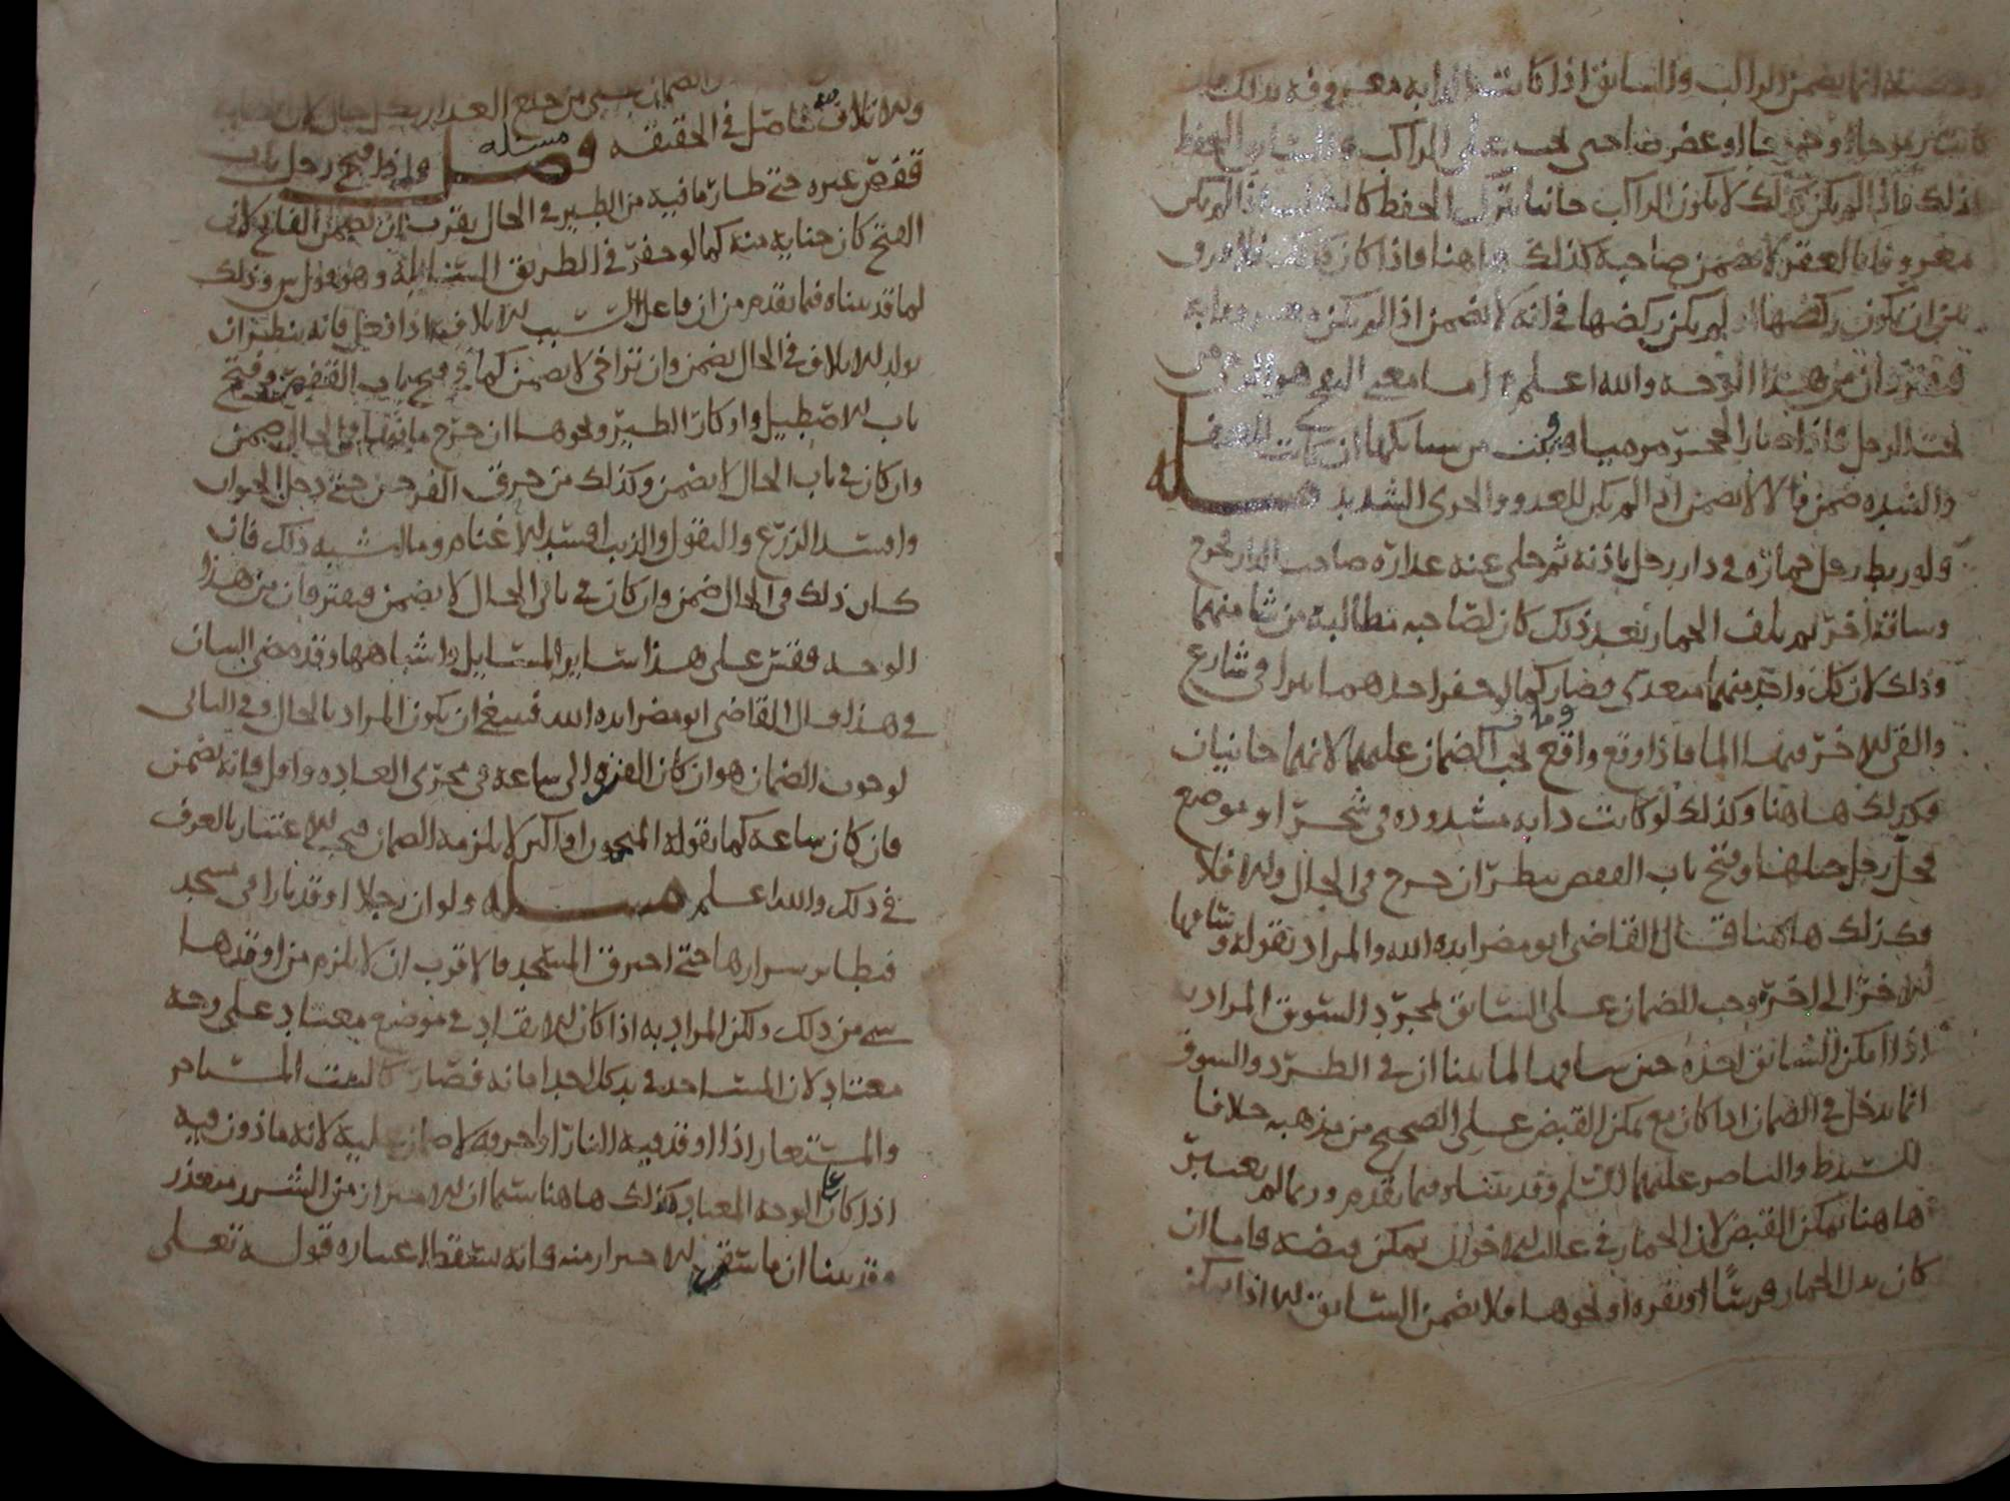 انما يضمن الراكب والسائق اذا كانت الدابه معروفه بذلك
على الراكب
اذلك فاذا لم يكن كذلك لا يكون الراكب جانيا بترك الحفظ كالكلب اذا لم يكن
معروفا بالعقر لا يضمن صاحبه كذلك هاهنا فاذا كان كذلك فلا فرق
بين ان يكون ركضها او لم يكن ركضها في انه لا يضمن اذا لم يكن معروفا به
فيفترقان من هذا الوجه والله اعلم اما معنى
تحت الرجل فاذا
والشده ضمن والا لا يضمن اذا لم يكن للعدو والجرى الشديد مسله
ولو ربط رجل حماره في دار رجل باذنه ثم خلى عنه عذاره صاحب الدار فخرج
وساقه اخر ثم تلف الحمار بعد ذلك كان لصاحبه مطالبة من شا منهما
وذلك لان كل واحد منهما متعدى فصار كما لو حفر احدهما بيرا في شارع
والقى الاخر فيها الما فاذا وقع واقع ومات يجب الضمان عليهما لانهما جانيان
فكذلك هاهنا وكذلك لو كانت دابه مشدوده في شجر او موضع
فحل رجل حبلها او فتح باب القفص ينظر ان خرج في الحال والا فلا
فكذلك هاهنا قال القاضى ابو مضر ايده الله والمراد بقوله وساقها
الاخر الى اخره وجب الضمان على السائق لمجرد السوق المراد به
اذا امكن السائق اخذه حين ساقها لما بينا ان في الطرد والسوق
انما يدخل في الضمان اذا كان مع تمكن القبض على الصحيح من مذهبه خلافا
للسيد ط والناصر عليهما السلم وقد بيناه فيما تقدم وربما لم يعتبر
هاهنا تمكن القبض لان الحمار في غالب الاحوال يمكن قبضه فاما ان
كان بدل الحمار فرسا او بقره او نحوها فلا يضمن السائق الا اذا تمكن
والاتلاف حاصل في الحقيقه فصل مسئله واذا فتح رجل باب
قفص غيره حتى طار ما فيه من الطير في الحال يقرب ان يضمن الفاتح لان
الفتح كان جنايه منه كما لو حفر في الطريق السابله وهو قول س وذلك
لما قد بيناه فيما تقدم من ان فاعل السبب للاتلاف اذا فعل فانه ينظر ان
تولد الاتلاف في الحال يضمن وان تراخى لا يضمن كما في فتح باب القفص وفتح
باب الاصطبل واوكار الطير ونحوها ان خرج ما فيها في الحال ضمن
وان كان في ثاني الحال لا يضمن وكذلك من خرق الفرجين حتى دخل الحيوان
وافسد الزرع والبقول والذيب افسد الاغنام وما اشبه ذلك فان
كان ذلك في الحال ضمن وان كان في ثاني الحال لا يضمن فيفترقان من هذا
الوجه فقس على هذا ساير المسايل واشباهها وقد مضى البيان
في هذا قال القاضى ابو مضر ايده الله فينبغي ان يكون المراد بالحال وفي الثاني
لوجوب الضمان هو ان كان الى ساعة في مجرى العاده واقل فانه يضمن
فان كان ساعة كما يقوله المنجمون او اكثر لا يلزمه الضمان الاعتبار بالعرف
في ذلك والله اعلم مسله ولو ان رجلا اوقد نارا في مسجد
فتطاير شرارها حتى احترق المسجد فالاقرب ان لا يلزم من اوقدها
شي من ذلك ولكن المراد به اذا كان الايقاد في موضع معتاد على وجه
معتاد لان المساجد في يد كل احد امانه فصار كالبيت المستاجر
والمستعار اذا اوقد فيه النار او احرقه لا ضمان عليه لانه ماذون فيه
اذا كان على الوجه المعتاد فكذلك هاهنا سيما ان الاحتراز من الشرر متعذر
وقد بينا ان ما يشق الاحتراز منه فانه يسقط اعتباره قوله تعالى